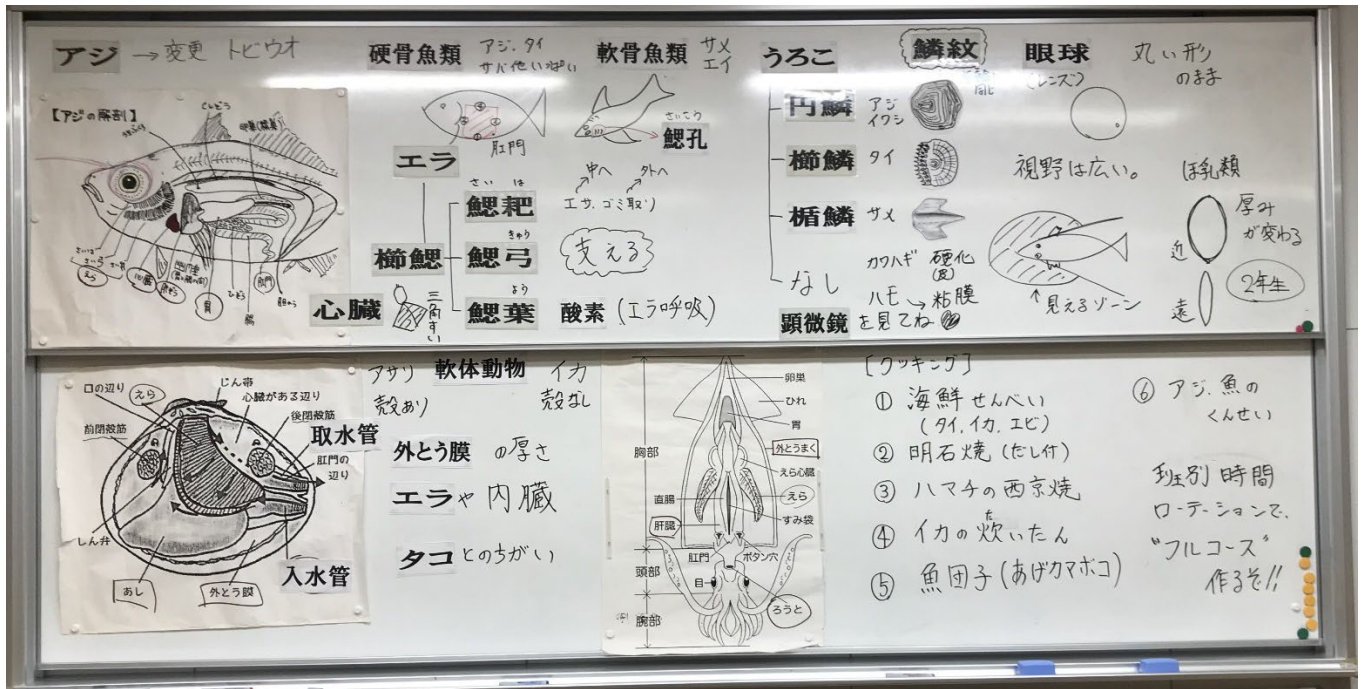 アジ →変更 トビウオ
【アジの解剖】
えら
心臓
胃
腸
肛門
硬骨魚類 アジ、タイ
サバ他いっぱい
肛門
エラ
櫛鰓
さい は
鰓耙
中へ 外へ
エサ、ゴミ取り
きゅう
鰓弓 支える
よう
鰓葉 酸素 (エラ呼吸)
心臓 三角すい
軟骨魚類 サメ
エイ
さいこう
鰓孔
うろこ 鱗紋
円鱗 アジ
イワシ
櫛鱗 タイ
楯鱗 サメ
なし カワハギ 硬化
(皮)
ハモ → 粘膜
顕微鏡を見てね
眼球 丸い形
のまま
(レンズ)
視野は広い。
↑見えるゾーン
ほ乳類
厚み
が変わる
近
遠
2年生
口の辺り
えら
じん帯
心臓がある辺り
後閉殻筋
前閉殻筋
取水管
肛門の
辺り
しん弁
あし
外とう膜
入水管
アサリ 軟体動物 イカ
殻あり 殻なし
外とう膜 の厚さ
エラや内臓
タコとのちがい
卵巣
ひれ
胃
胸部
外とうまく
えら心臓
えら
直腸
すみ袋
肝臓
肛門
ボタン穴
頭部
目
ろうと
腕部
[クッキング]
① 海鮮せんべい
(タイ、イカ、エビ)
② 明石焼(だし付)
③ ハマチの西京焼
た
④ イカの炊いたん
⑤ 魚団子(あげカマボコ)
⑥ アジ、魚の
くんせい
班別時間
ローテーションで、
"フルコース"
作るぞ!!